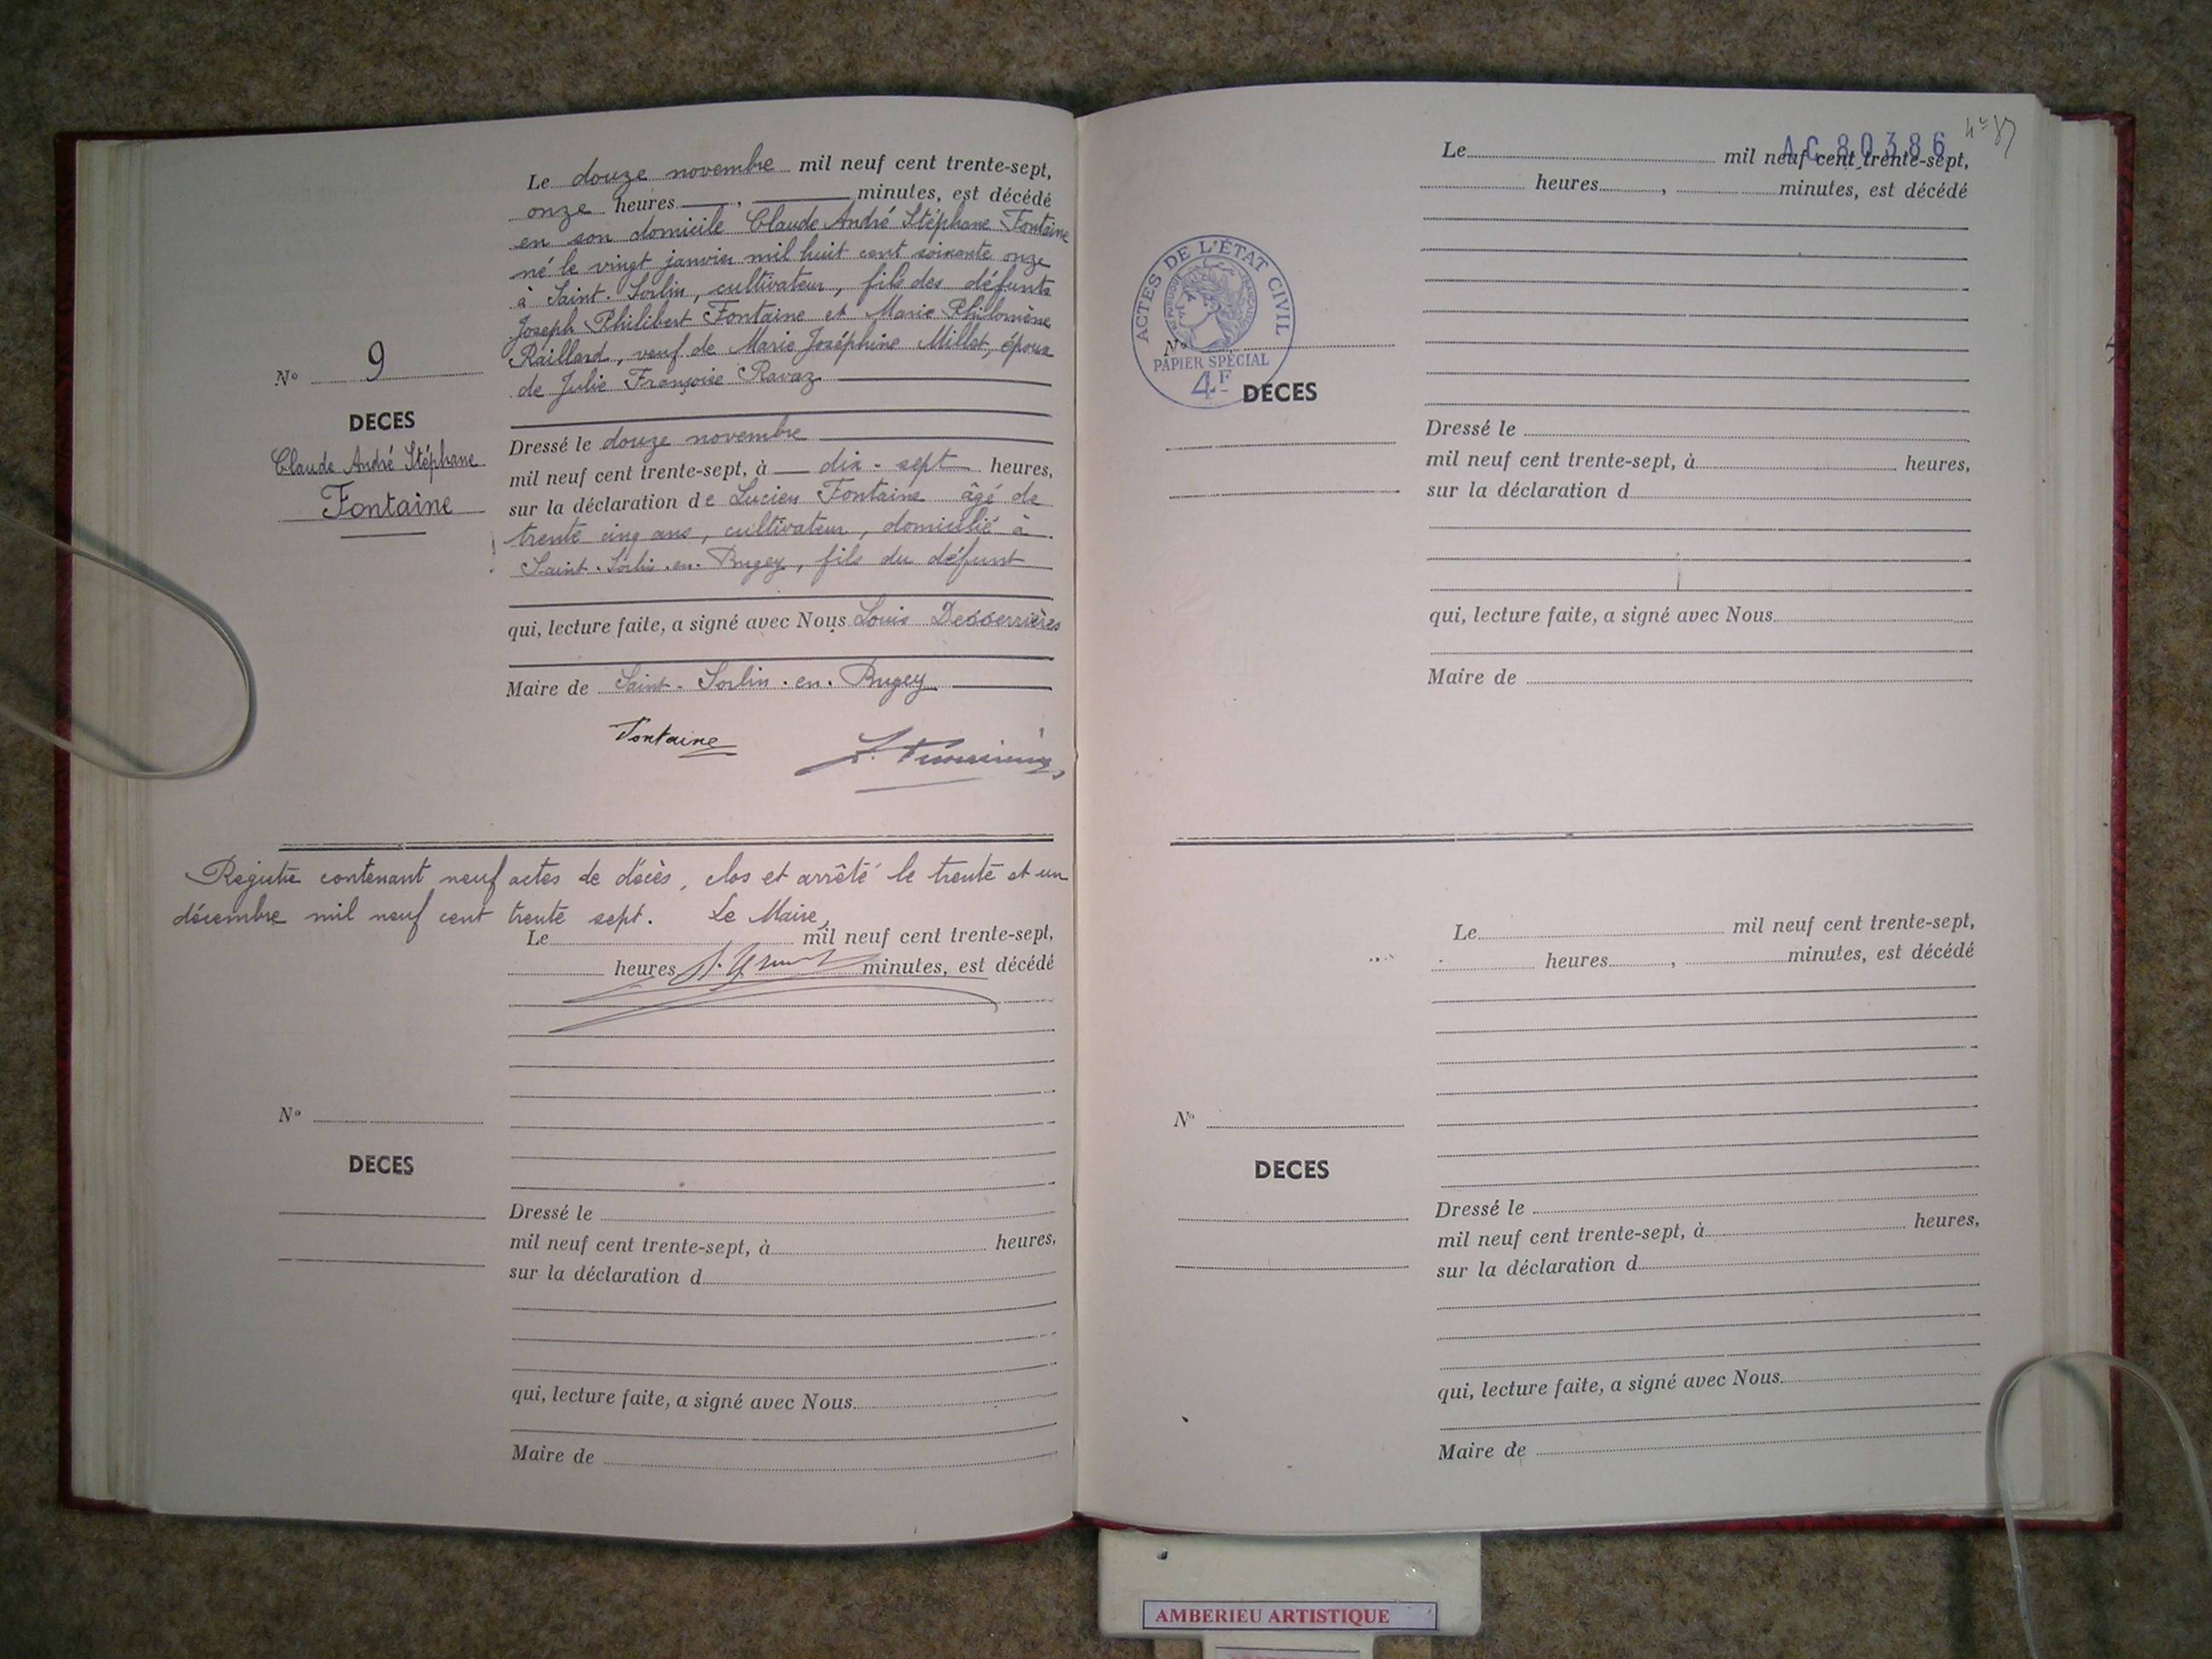 Le douze novembre mil neuf cent trente-sept,
onze heures , minutes, est décédé
en son domicile Claude André Stéphane Fontaine
né le vingt janvier mil huit cent soixante onze
à Saint-Sorlin, cultivateur, fils des défunts
Joseph Philibert Fontaine et Marie Philomène
Raillard, veuf de Marie Joséphine Millet, époux
de Julie Françoise Ravaz
Nº 9
DECES
Claude André Stéphane
Fontaine
Dressé le douze novembre
mil neuf cent trente-sept, à dix-sept heures,
sur la déclaration de Lucien Fontaine âgé de
trente cinq ans, cultivateur, domicilié à
Saint-Sorlin-en-Bugey, fils du défunt
qui, lecture faite, a signé avec Nous Louis Desserrières
Maire de Saint-Sorlin-en-Bugey
Fontaine
Registre contenant neuf actes de décès, clos et arrêté le trente et un
décembre mil neuf cent trente sept. Le Maire,
Le mil neuf cent trente-sept,
heures minutes, est décédé
Nº
DECES
Dressé le
mil neuf cent trente-sept, à heures,
sur la déclaration d
qui, lecture faite, a signé avec Nous
Maire de
AC 80386
Le mil neuf cent trente-sept,
heures , minutes, est décédé
ACTES DE L'ÉTAT CIVIL
RÉPUBLIQUE FRANÇAISE
PAPIER SPÉCIAL
4F
Nº
DECES
Dressé le
mil neuf cent trente-sept, à heures,
sur la déclaration d
qui, lecture faite, a signé avec Nous
Maire de
Le mil neuf cent trente-sept,
heures , minutes, est décédé
Nº
DECES
Dressé le
mil neuf cent trente-sept, à heures,
sur la déclaration d
qui, lecture faite, a signé avec Nous
Maire de
AMBERIEU ARTISTIQUE